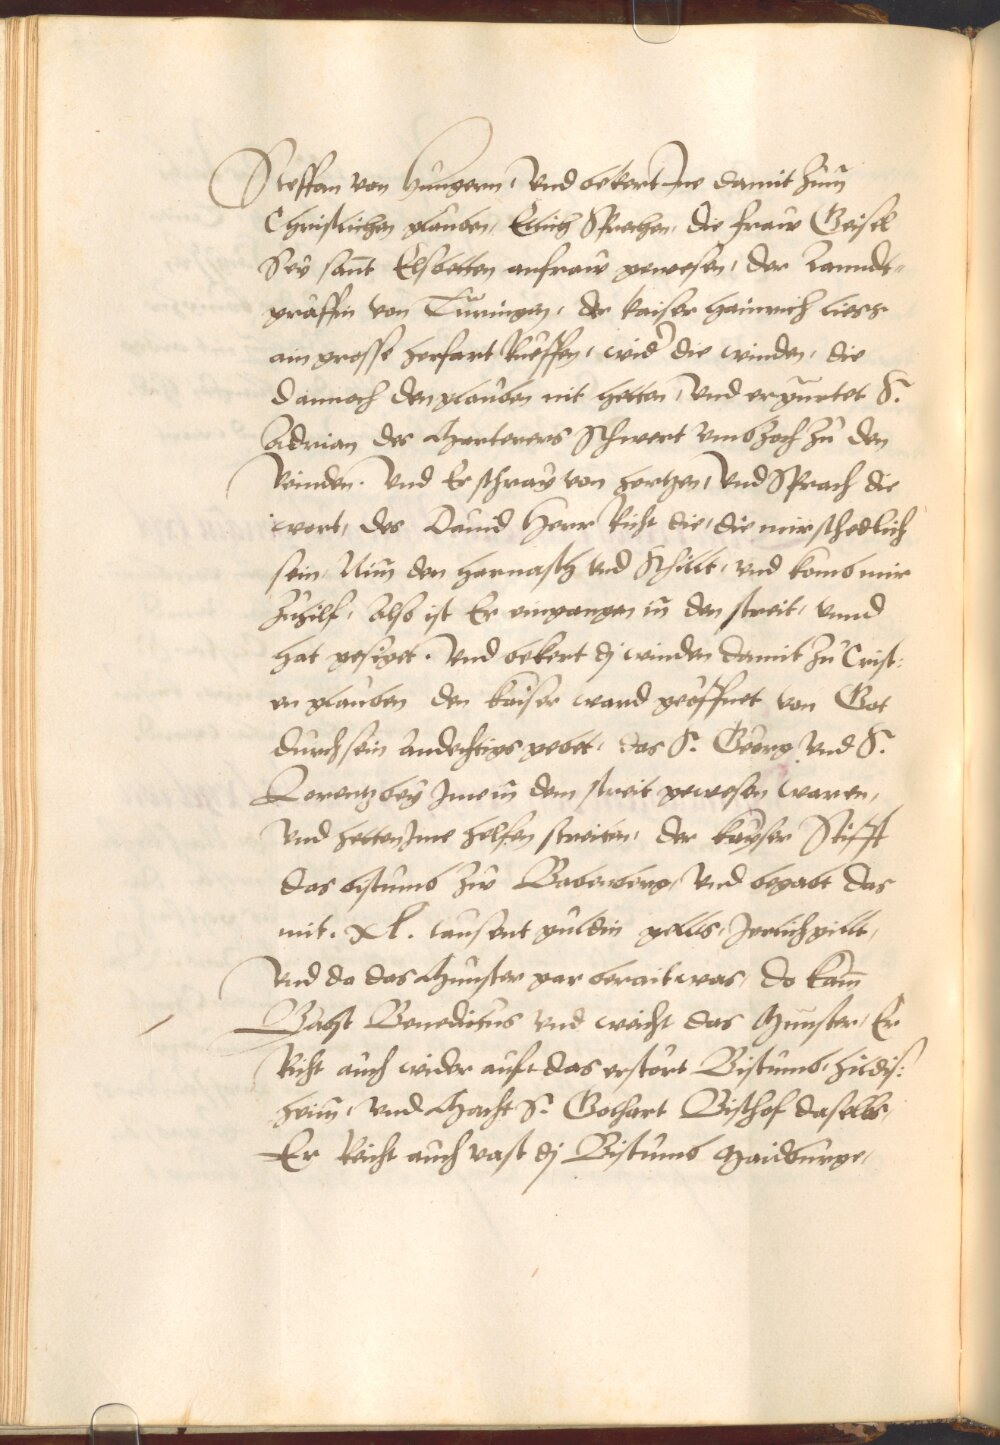 Steffan von Hungern, Vnd bekert Ine damit zum̃
Christlichen glauben, Etlich Sprechen, die fraw Geisel
Seÿ sant Elsbetten anfraw gewesen, der Lanndt-
gräffin von Turingen, der kaiser Hainrich liess
ain grosse herfart Rueffen, wider die winden, die
dannoch den glauben nit hetten, Vnd ergurtet S.
Adrian des Marterers Schwert vmb zoch zu den
Veinden. Vnd Er schraÿ von hertzen, Vnd Sprach die
wort, des Dauid Herr Richt die, die mir schedlich
sein, Nim̃ den harnasch vnd Schillt, vnd komb mir
zuhilf, Also ist Er eingangen in den streit, vnnd
hat gesiget. Vnd bekert dj winden damit zu Crist-
en glauben den kaiser ward geöffnet von Got
durch sein andechtigs gebet, das S. Georg Vnd S.
Lorentz beÿ Ime in dem streit gewesen waren,
Vnd hetten Ime helfen streiten, der kaÿser Stifft
das bistumb zw Baberberg, Vnd begabt das
mit. xl. tausent guldin gellts, Jerlich gillt,
Vnd da das Munster gar berait was, do kam̃
Babst Benedictus vnd weicht das Munster, Er
Richt auch wider auf, das erstört Bistumb, hildis-
heim, Vnd Macht S. Gothart Bischof daselbs,
Er Richt auch vast dj Bistumb Maidburge,